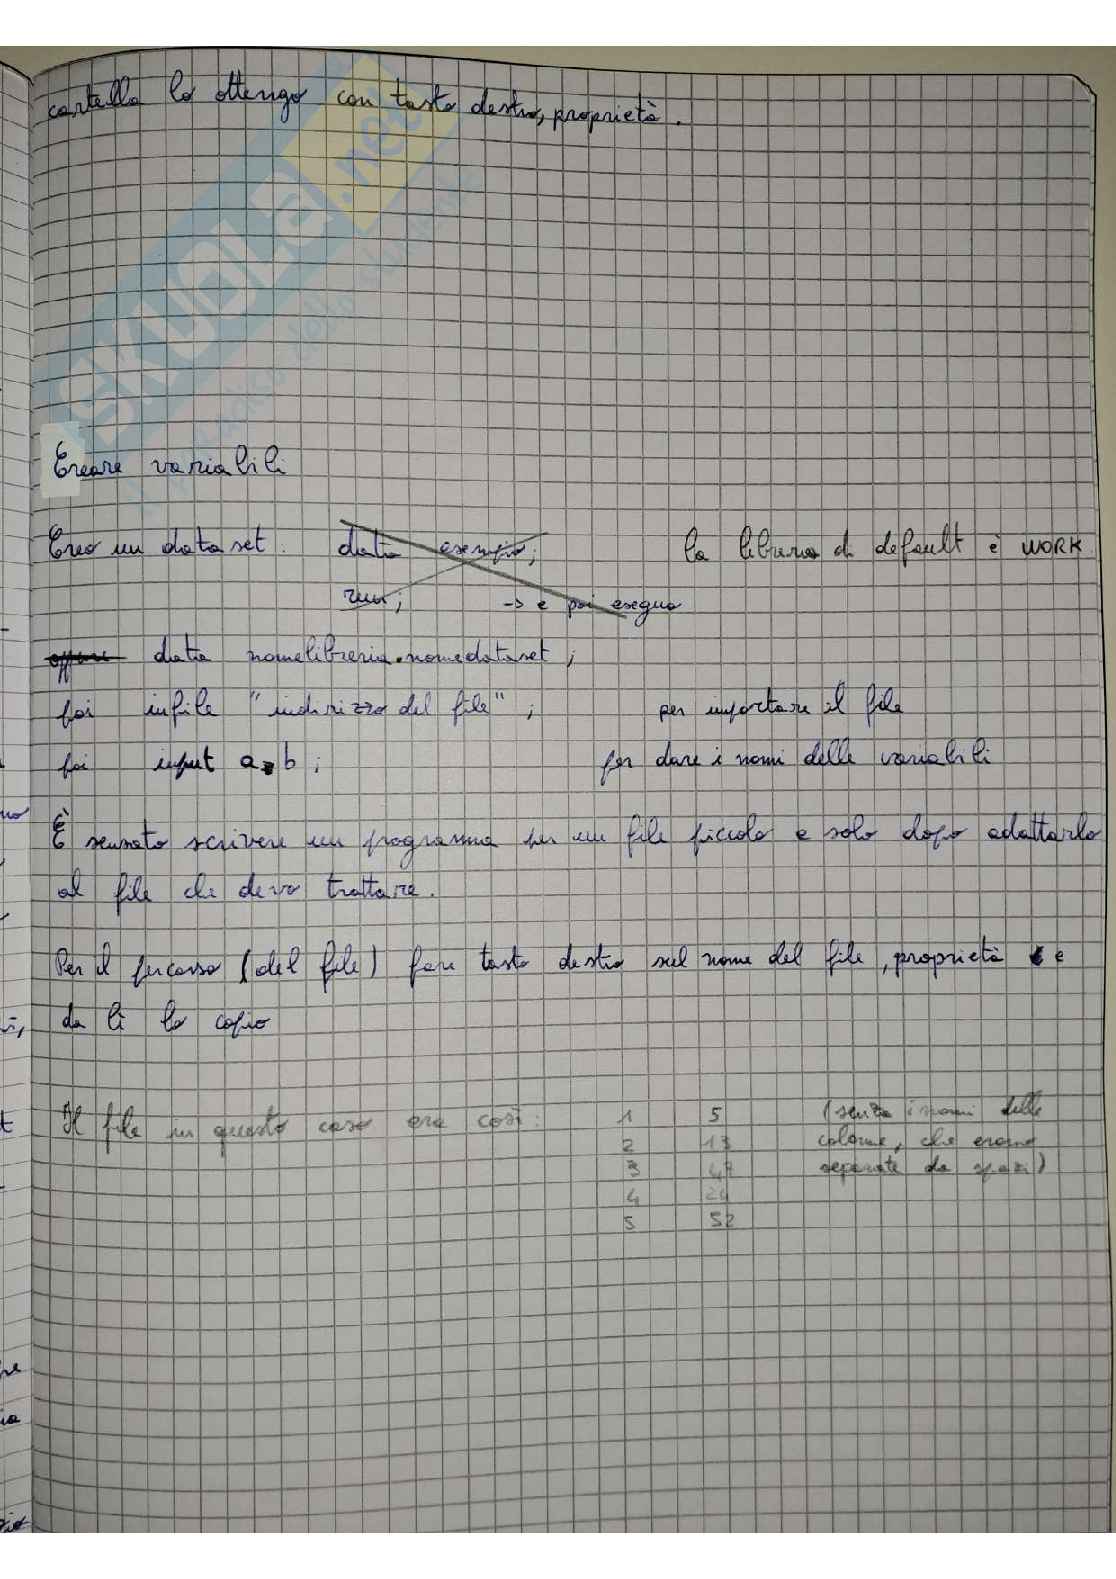 cartella lo ottengo con tasto destro, proprietà.
SKUOLA.net
Creare variabili
Creo un data set. data esempio; la libreria di default è WORK
run; -> e poi eseguo
oppure data nomelibreria.nomedataset;
poi infile "indirizzo del file"; per importare il file
poi input a b; per dare i nomi delle variabili
È sensato scrivere un programma per un file piccolo e solo dopo adattarlo
al file che devo trattare.
Per il percorso (del file) fare tasto destro sul nome del file, proprietà e
da lì lo copio
Il file in questo caso era così: 1 5 (senza i nomi delle
2 13 colonne, che erano
3 47 separate da spazi)
4 24
5 52